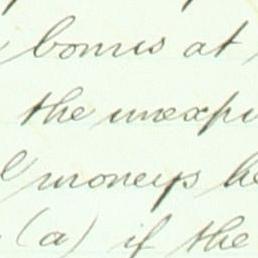 bonus at
the unexpi
moneys he
(a) if the